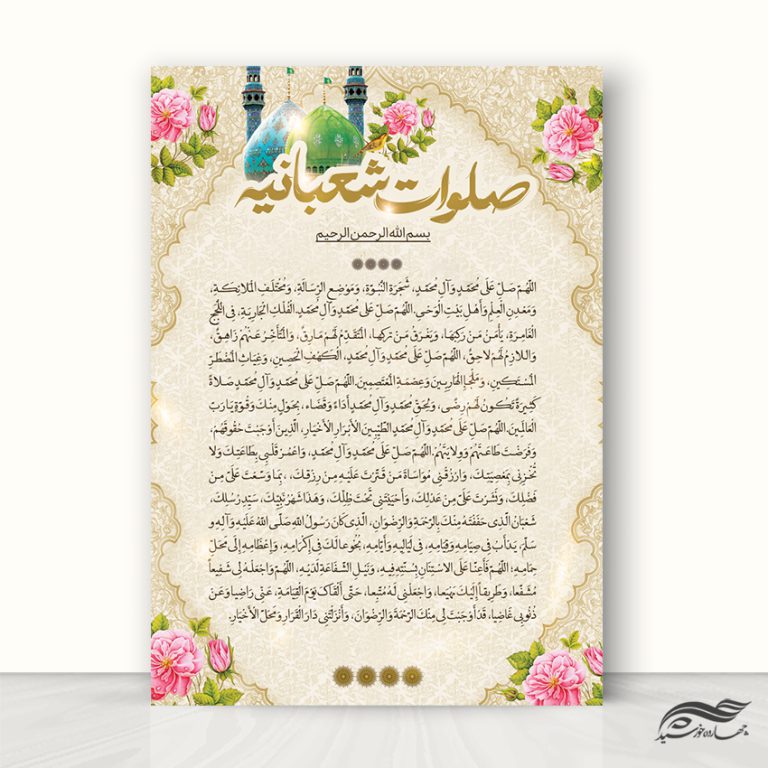 صلوات شعبانیه
بسم الله الرحمن الرحیم
اللّهُمَّ صَلِّ عَلَى مُحَمَّدٍ وَآلِ مُحَمَّدٍ، شَجَرَةِ النُّبُوَّةِ، وَمَوْضِعِ الرِّسَالَةِ، وَمُخْتَلَفِ الْمَلائِكَةِ،
وَمَعْدِنِ الْعِلْمِ وَأَهْلِ بَيْتِ الْوَحْيِ. اللّهُمَّ صَلِّ عَلَى مُحَمَّدٍ وَآلِ مُحَمَّدٍ الْفُلْكِ الْجَارِيَةِ، فِي اللُّجَجِ
الْغَامِرَةِ، يَأْمَنُ مَنْ رَكِبَهَا، وَيَغْرَقُ مَنْ تَرَكَهَا، الْمُتَقَدِّمُ لَهُمْ مَارِقٌ، وَالْمُتَأَخِّرُ عَنْهُمْ زَاهِقٌ،
وَاللازِمُ لَهُمْ لاحِقٌ، اللّهُمَّ صَلِّ عَلَى مُحَمَّدٍ وَآلِ مُحَمَّدٍ، الْكَهْفِ الْحَصِينِ، وَغِيَاثِ الْمُضْطَرِّ
الْمُسْتَكِينِ، وَمَلْجَإِ الْهَارِبِينَ وَعِصْمَةِ الْمُعْتَصِمِينَ. اللّهُمَّ صَلِّ عَلَى مُحَمَّدٍ وَآلِ مُحَمَّدٍ صَلاةً
كَثِيرَةً تَكُونُ لَهُمْ رِضًى، وَلِحَقِّ مُحَمَّدٍ وَآلِ مُحَمَّدٍ أَدَاءً وَقَضَاءً، بِحَوْلٍ مِنْكَ وَقُوَّةٍ يَا رَبَّ
الْعَالَمِينَ. اللّهُمَّ صَلِّ عَلَى مُحَمَّدٍ وَآلِ مُحَمَّدٍ الطَّيِّبِينَ الأَبْرَارِ الأَخْيَارِ، الَّذِينَ أَوْجَبْتَ حُقُوقَهُمْ،
وَفَرَضْتَ طَاعَتَهُمْ وَوِلايَتَهُمْ. اللّهُمَّ صَلِّ عَلَى مُحَمَّدٍ وَآلِ مُحَمَّدٍ، وَاعْمُرْ قَلْبِي بِطَاعَتِكَ وَلا
تُخْزِنِي بِمَعْصِيَتِكَ، وَارْزُقْنِي مُوَاسَاةَ مَنْ قَتَّرْتَ عَلَيْهِ مِنْ رِزْقِكَ، ، بِمَا وَسَّعْتَ عَلَيَّ مِنْ
فَضْلِكَ، وَنَشَرْتَ عَلَيَّ مِنْ عَدْلِكَ، وَأَحْيَيْتَنِي تَحْتَ ظِلِّكَ، وَهَذَا شَهْرُ نَبِيِّكَ، سَيِّدِ رُسُلِكَ،
شَعْبَانُ الَّذِي حَفَفْتَهُ مِنْكَ بِالرَّحْمَةِ وَالرِّضْوَانِ، الَّذِي كَانَ رَسُولُ اللهِ صَلَّى اللهُ عَلَيْهِ وَآلِهِ وَ
سَلَّمَ، يَدْأَبُ فِي صِيَامِهِ وَقِيَامِهِ، فِي لَيَالِيهِ وَأَيَّامِهِ، بُخُوعًا لَكَ فِي إِكْرَامِهِ، وَإِعْظَامِهِ إِلَى مَحَلِّ
حِمَامِهِ؛ اللّهُمَّ فَأَعِنَّا عَلَى الاسْتِنَانِ بِسُنَّتِهِ فِيهِ، وَنَيْلِ الشَّفَاعَةِ لَدَيْهِ، اللّهُمَّ وَاجْعَلْهُ لِي شَفِيعًا
مُشَفَّعًا، وَطَرِيقًا إِلَيْكَ مَهْيَعًا، وَاجْعَلْنِي لَهُ مُتَّبِعًا، حَتَّى أَلْقَاكَ يَوْمَ الْقِيَامَةِ، عَنِّي رَاضِيًا وَعَنْ
ذُنُوبِي غَاضِيًا، قَدْ أَوْجَبْتَ لِي مِنْكَ الرَّحْمَةَ وَالرِّضْوَانَ، وَأَنْزَلْتَنِي دَارَ الْقَرَارِ وَمَحَلَّ الأَخْيَارِ.
چهارده خورشید